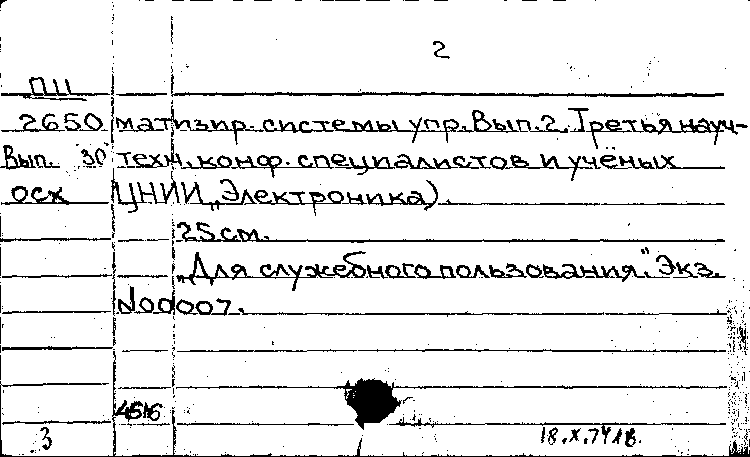 2
П11
2650 матизир. системы упр. Вып. 2. Третья науч-
Вып. 30 техн. конф. специалистов и учёных
осх ЦНИИ „Электроника).
25 см.
„Для служебного пользования." Экз.
№00007.
4516
3 18.X.74